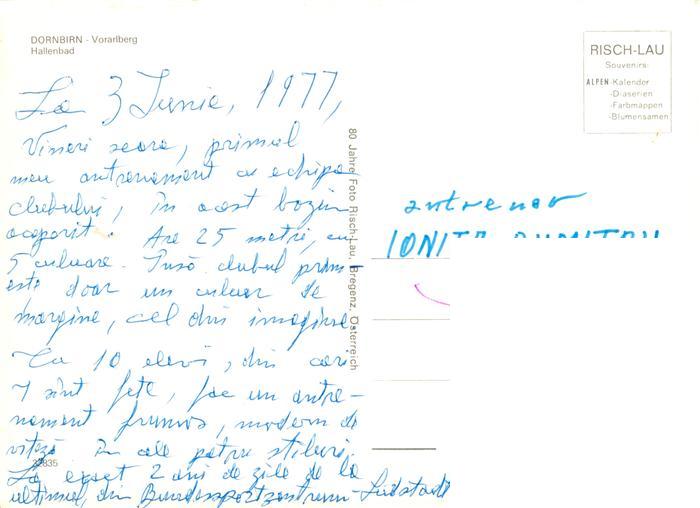 DORNBIRN - Vorarlberg
Hallenbad
RISCH-LAU
Souvenirs:
ALPEN-Kalender
-Diaserien
-Farbmappen
-Blumensamen
La 3 Iunie, 1977,
Vineri seara, primul
meu antrenament cu echipa
clubului, în acest bazin
acoperit. Are 25 metri, cu
5 culuare. Însă clubul
este doar un culuar de
margine, cel din imagine.
Cu 10 elevi, din cari
7 sînt fete, fac un antre-
nament frumos, modern de
viteză în cele patru stiluri.
La exact 2 ani de zile de la
ultimul, din Bundessportzentrum-Südstadt
80 Jahre Foto Risch-Lau, Bregenz, Österreich
antrenor
IONIȚA DUMITRU